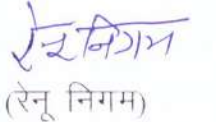 रेनू निगम
(रेनू निगम)